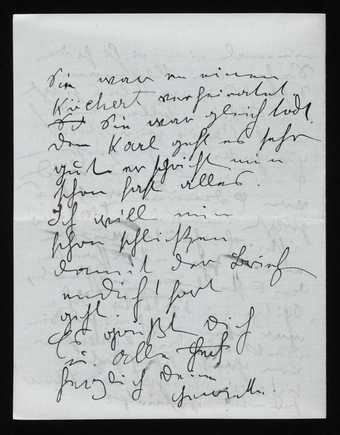 Sie war an einen
Küchert verheiratet.
Sie war gleich todt.
dem Karl geht es sehr
gut er schickt mir
schon fast alles.
Ich will nun
schon schließen
damit der Brief
endlich fort
geht.
Es grüßt Dich
u. alle
herzlich Deine